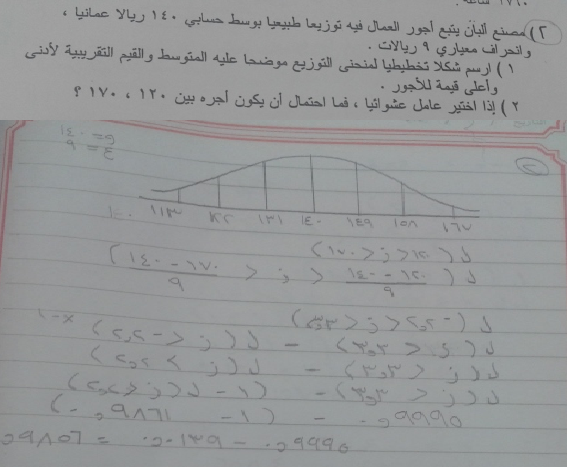 ٢) مصنع ألبان يتبع أجور العمال فيه توزيعا طبيعيا بوسط حسابي ١٤٠ ريالا عمانيا ،
وانحراف معياري ٩ ريالات .
١) ارسم شكلا تخطيطيا لمنحنى التوزيع موضحا عليه المتوسط والقيم التقريبية لأدنى
وأعلى قيمة للأجور .
٢) إذا اختير عامل عشوائيا ، فما احتمال أن يكون أجره بين ١٢٠ ، ١٧٠ ؟
و = ١٤٠
ع = ٩
٢
١١٣ ١٢٢ ١٣١ ١٤٠ ١٤٩ ١٥٨ ١٦٧
ل ( ١٢٠ < س < ١٧٠ )
ل ( ١٢٠ - ١٤٠ / ٩ < ز < ١٧٠ - ١٤٠ / ٩ )
ل ( -٢,٢ < ز < ٣,٣ )
ل ( ز < ٣,٣ ) - ل ( ز < -٢,٢ )
ل ( ز < ٣,٣ ) - ل ( ز > ٢,٢ )
ل ( ز < ٣,٣ ) - ( ١ - ل ( ز < ٢,٢ )
٠,٩٩٩٥ - ( ١ - ٠,٩٨٦١ )
٠,٩٩٩٥ - ٠,٠١٣٩ = ٠,٩٨٥٦